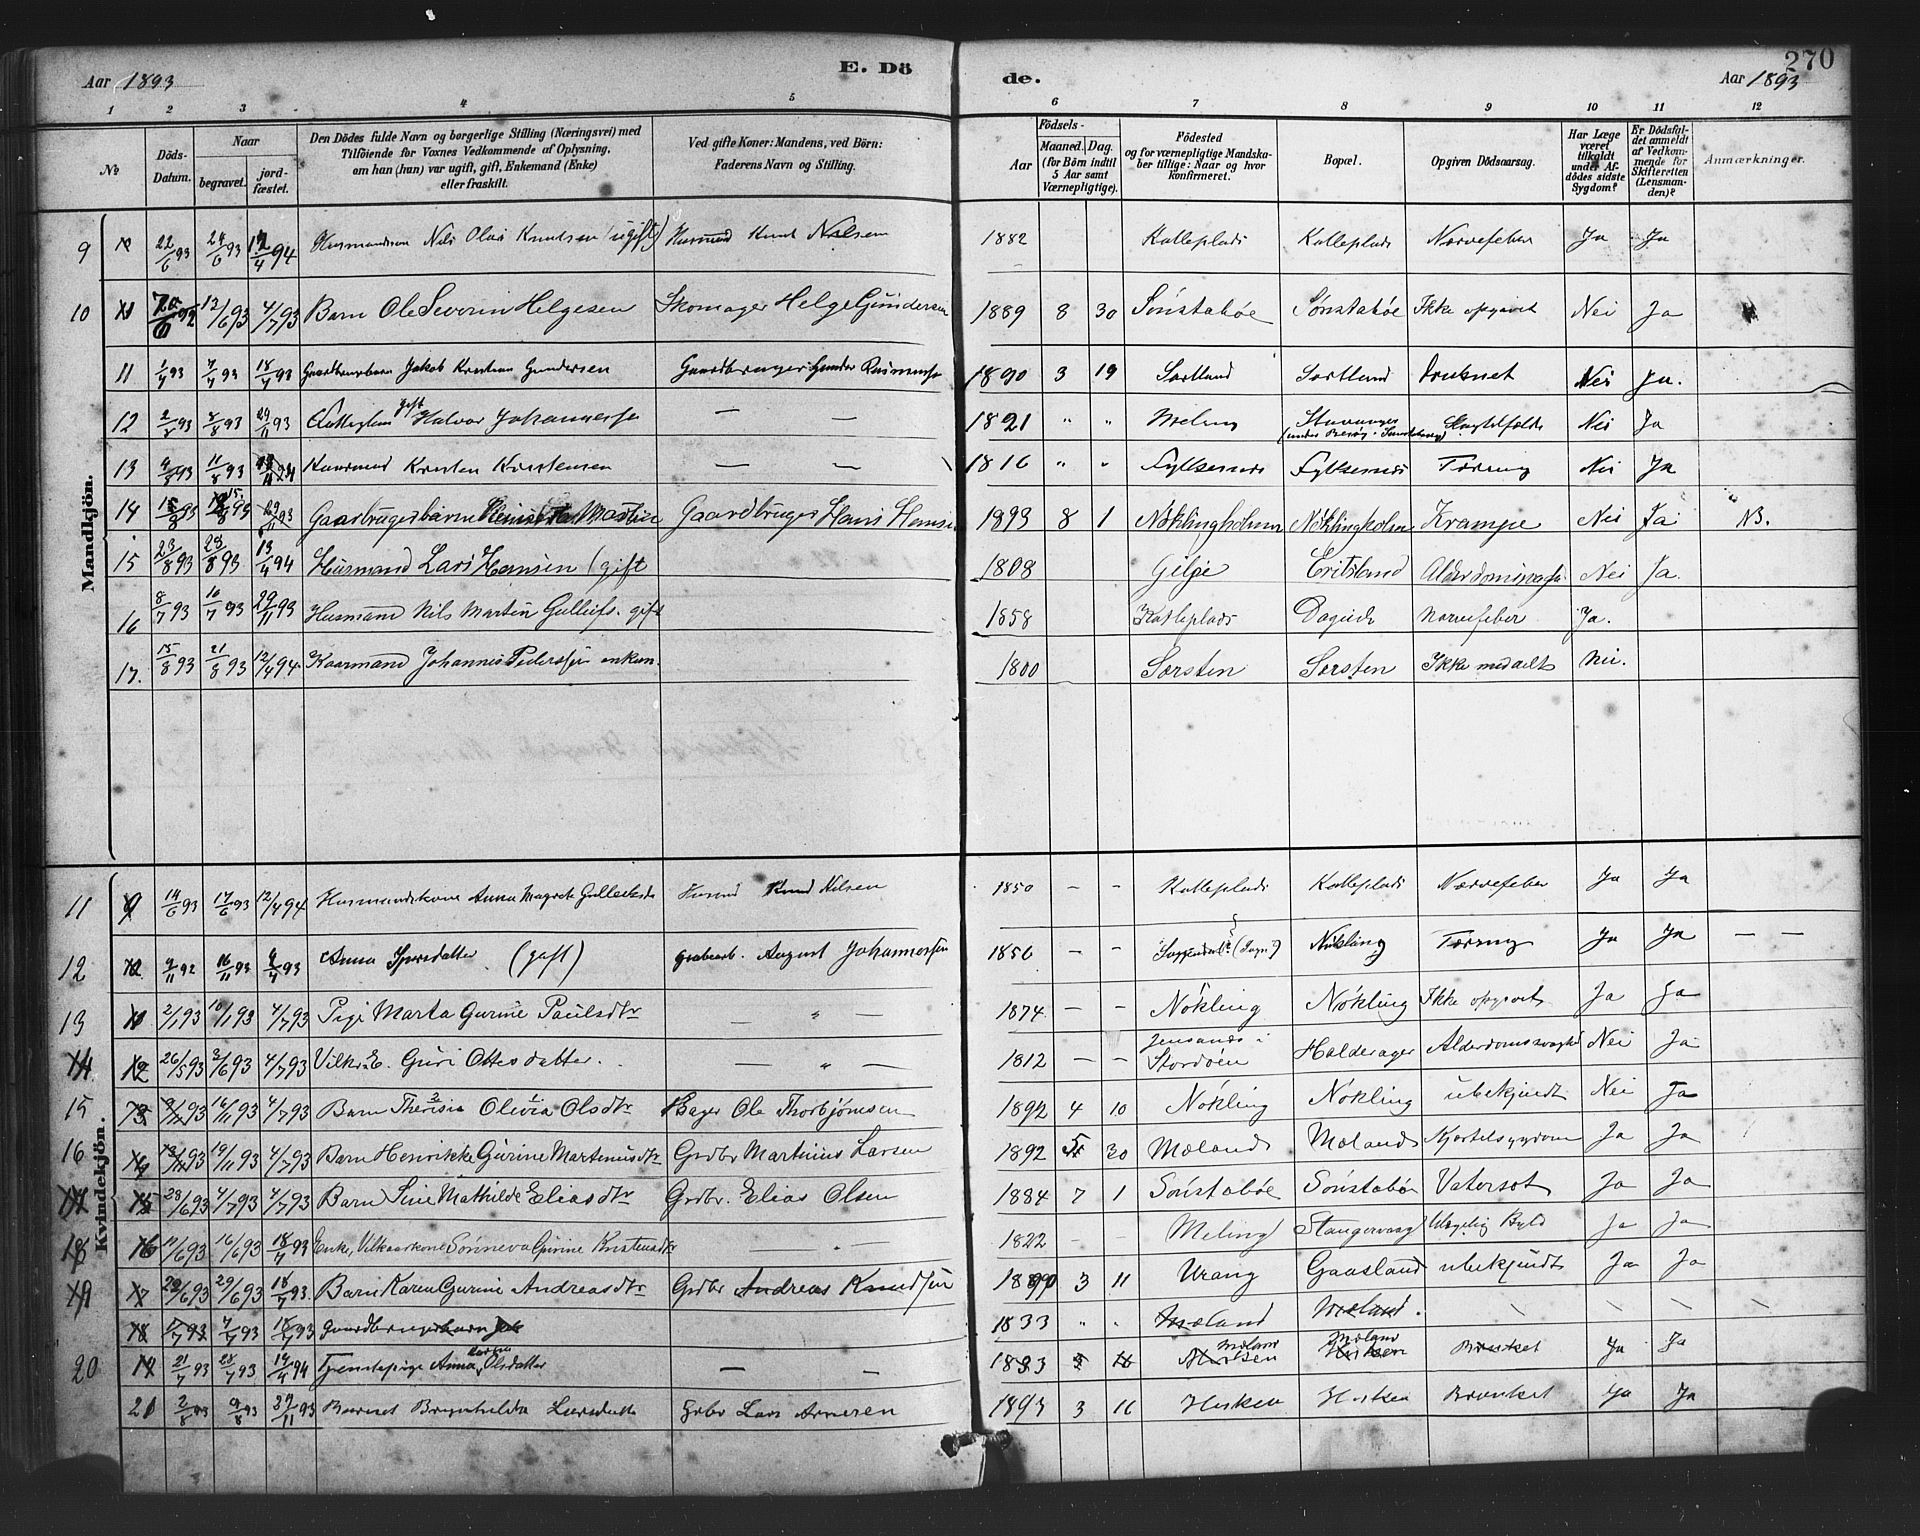 Aar 1893
E. Dö
de.
270
Aar 1893
1 2 3 4 5 6 7 8 9 10 11 12
No
Döds-Datum.
Naar
begravet.
jordfæstet.
Den Dödes fulde Navn og borgerlige Stilling (Næringsvei) med
Tilföiende for Voxnes Vedkommende af Oplysning,
om han (hun) var ugift, gift, Enkemand (Enke)
eller fraskilt.
Ved gifte Koner: Mandens, ved Börn:
Faderens Navn og Stilling.
Födsels-
Aar
Maaned. Dag.
(for Börn indtil
5 Aar samt
Værnepligtige).
Födested
og for værnepligtige Mandskaber tillige: Naar og hvor
konfirmeret.
Bopæl.
Opgiven Dödsaarsag.
Har Læge
været
tilkaldt
under Afdödes sidste
Sygdom?
Er Dödsfaldet anmeldt
af Vedkommende for
Skifteretten
(Lensmanden)?
Anmærkninger.
Mandkjön.
9 22/6 93 24/6 93 Husmandssøn Nils Olai Knutsen (ugift) Husmd Knut Nilsen 1882 Kalleplads Kalleplads Nervefeber Ja Ja
10 12/6 93 4/7 93 Barn Ole Severin Helgesen Skomager Helge Gundersen 1889 8 30 Sønstabøe Sønstabøe Ikke opgivet Nei Ja
11 1/7 93 7/7 93 18/7 93 Gaardbrugerbarn Jakob Kristian Gundersen Gaardbruger Gunder Rasmusse 1890 3 19 Sortland Sortland Druknet Nei Ja.
12 8/8 93 29/11 93 gift Halvor Johannesse — — 1821 " " Meling Nei Ja
13 9/8 93 11/8 93 Kaarmand Kristen Kristensen — — 1816 " " Fylkesnes Fylkesnes Tæring Nei Ja
14 29/11 93 Gaardbrugerbarn Martin Gaardbruger Hans Hansen 1893 8 1 Nøklingholmn Nøklingholm Krampe Nei Ja NB.
15 23/8 93 28/8 93 13/4 94 Husmand Lars Hansen (gift 1808 Gilje Eritsland Alderdomssvagh. Nei Ja.
16 8/7 93 10/7 93 29/11 93 Husmand Nils Martin Gulleifs. gift 1858 Katleplads Dagside Nervefeber Ja.
17. 15/8 93 21/8 93 12/4 94. Kaarmand Johannis Pederssen enkem. 1800 Sørsten Sørsten Ikke meddelt Nei.
Kvindekjön.
11 9 14/6 93 17/6 93 12/4 94 Husmandskone Anna Magrete Gulleiksdr Husmd Knud Nilsen 1850 — — Kalleplads Kalleplads Nervefeber Ja Ja
12 9/11 92 16/11 93 4/7 93 Anna Iversdatter (gift) August Johannessen 1856 — — Nøkling Tæring Ja Ja — —
13 2/1 93 10/1 93 4/7 93 Pige Marta Gurine Paulsdtr — " — 1874 — — Nøkling Nøkling Ikke opgivet Ja Ja
14 26/5 93 2/6 93 4/7 93 Vilkr. E. Guri Ottesdatter. — " — 1812 — — Jensanes i Stordøen Halderager Alderdomssvaghd Nei Ja
15 9/11 93 16/11 93 4/7 93 Barn Theresia Olivia Olsdtr Bager Ole Thorbjørnsen 1892 4 10 Nøkling Nøkling ubekjendt Nei Ja
16 19/11 93 4/7 93 Barn Henrikke Gurine Martinusdtr Grdbr Martinius Larsen 1892 5 20 Mæland Mæland Hjertesygdom Ja Ja
17 23/6 93 4/7 93 4/7 93 Barn Sine Mathilde Eliasdtr Grdbr. Elias Olsen 1884 7 1 Sønstabøe Sønstabøe Vatersot Ja Ja
18 16 11/6 93 16/6 93 18/7 93 Enke, Vilkaarkone Sønneva Gurine Kristensdtr — " — 1822 — — Meling Stangervaag Ja Ja
19 17 22/6 93 29/6 93 18/7 93. Barn Karen Gurine Andreasdtr Grdbr Andreas Knudsen 1890 3 11 Urang Gaasland ubekjendt Ja Ja
18 7/7 93 18/7 93 Gaardbrugerbarn 1833 " " Mæland Mæland.
20 19 21/7 93 28/7 93 19/4 94 Tjenestepige Anna Karina Olsdatter — — 1833 3 16 Mæland Hisken Mæland Hisken Brænket Ja Ja
20 2/8 93 9/8 93 29/11 93 Barnet Brynhilda Larsdatter Grbr Lars Arnesen 1893 3 16 Hisken Hisken Brænket Ja Ja